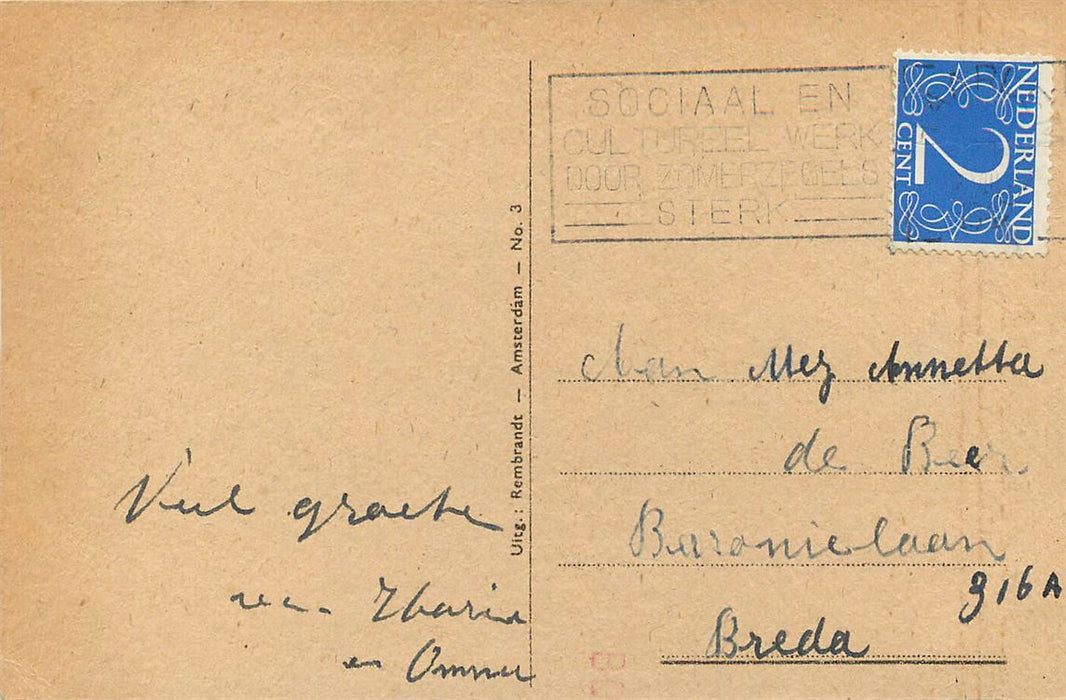 Veel groeten
van
en
Uitg.: Rembrandt — Amsterdam — No. 3
SOCIAAL EN
CULTUREEL WERK
DOOR ZOMERZEGELS
STERK
NEDERLAND
2
CENT
Aan Mej Annetta
de Beer
Baronielaan
316A
Breda